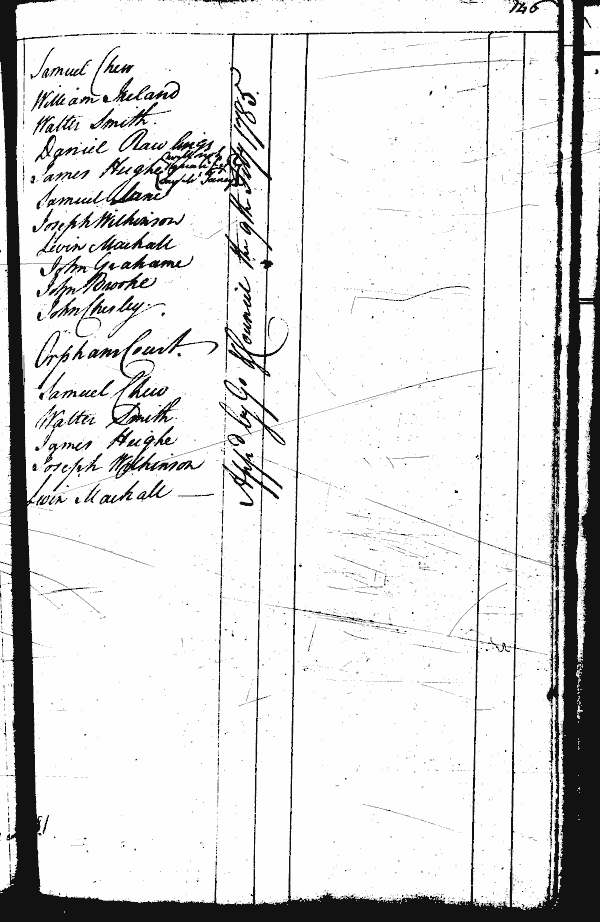 146
Samuel Chew
William Ireland
Walter Smith
Daniel Rawlings
James Hughe
Samuel Lane
Joseph Wilkinson
Levin Mackall
John Grahame
John Brooke
John Chesley.
Orphans Court.
Samuel Chew
Walter Smith
James Hughe
Joseph Wilkinson
Levin Mackall —
App'd by Go & Council the 9th Feby 1785.